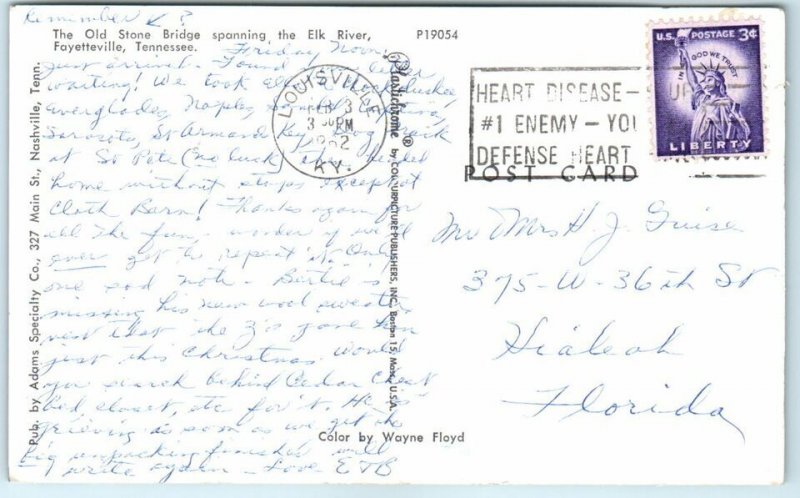 Remember ?
The Old Stone Bridge spanning the Elk River,
Fayetteville, Tennessee.
P19054
Friday Noon.
Just arrived. Found
waiting! We took
Everglades, Naples,
Sarasota, St Armand Key,
at St Pete (no luck) headed
home without stops except
Cloth Barn! Thanks again for
all the fun, wonder if we'll
ever get to repeat it. Only
one sad note - Bertie is
missing his new wool sweater
vest that the J's gave him
just this Christmas. Would
you search behind Cedar Chest
bed, closet, etc for it. He is
grieving as soon as we get the
big unpacking finished will
write again - Love ETB
Pub. by Adams Specialty Co., 327 Main St., Nashville, Tenn.
Plastichrome ® by COLOURPICTURE PUBLISHERS, INC. Boston 15, Mass. U.S.A.
Color by Wayne Floyd
LOUISVILLE
FEB 3
3 PM
1962
KY.
HEART DISEASE-
#1 ENEMY - YOU
DEFENSE HEART
U.S. POSTAGE 3¢
IN GOD WE TRUST
LIBERTY
POST CARD
Mr Mrs H. J. Guise
375-W-36th St
Hialeah
Florida